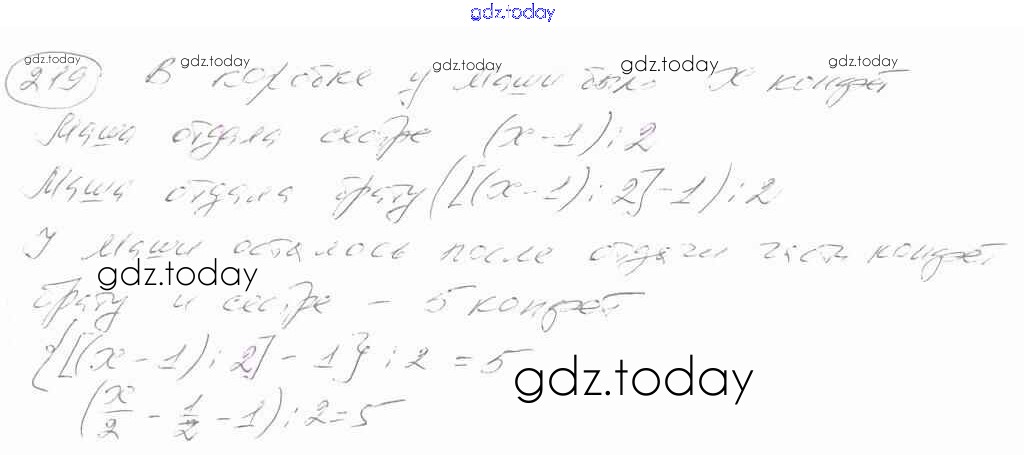 gdz.today
219 В коробке у Маши было x конфет
gdz.today gdz.today gdz.today gdz.today
Маша отдала сестре (x-1):2
Маша отдала брату ([(x-1):2]-1):2
У Маши осталось после отдачи части конфет
gdz.today
брату и сестре - 5 конфет
{[(x-1):2]-1}:2=5
gdz.today
(x/2 - 1/2 - 1):2=5